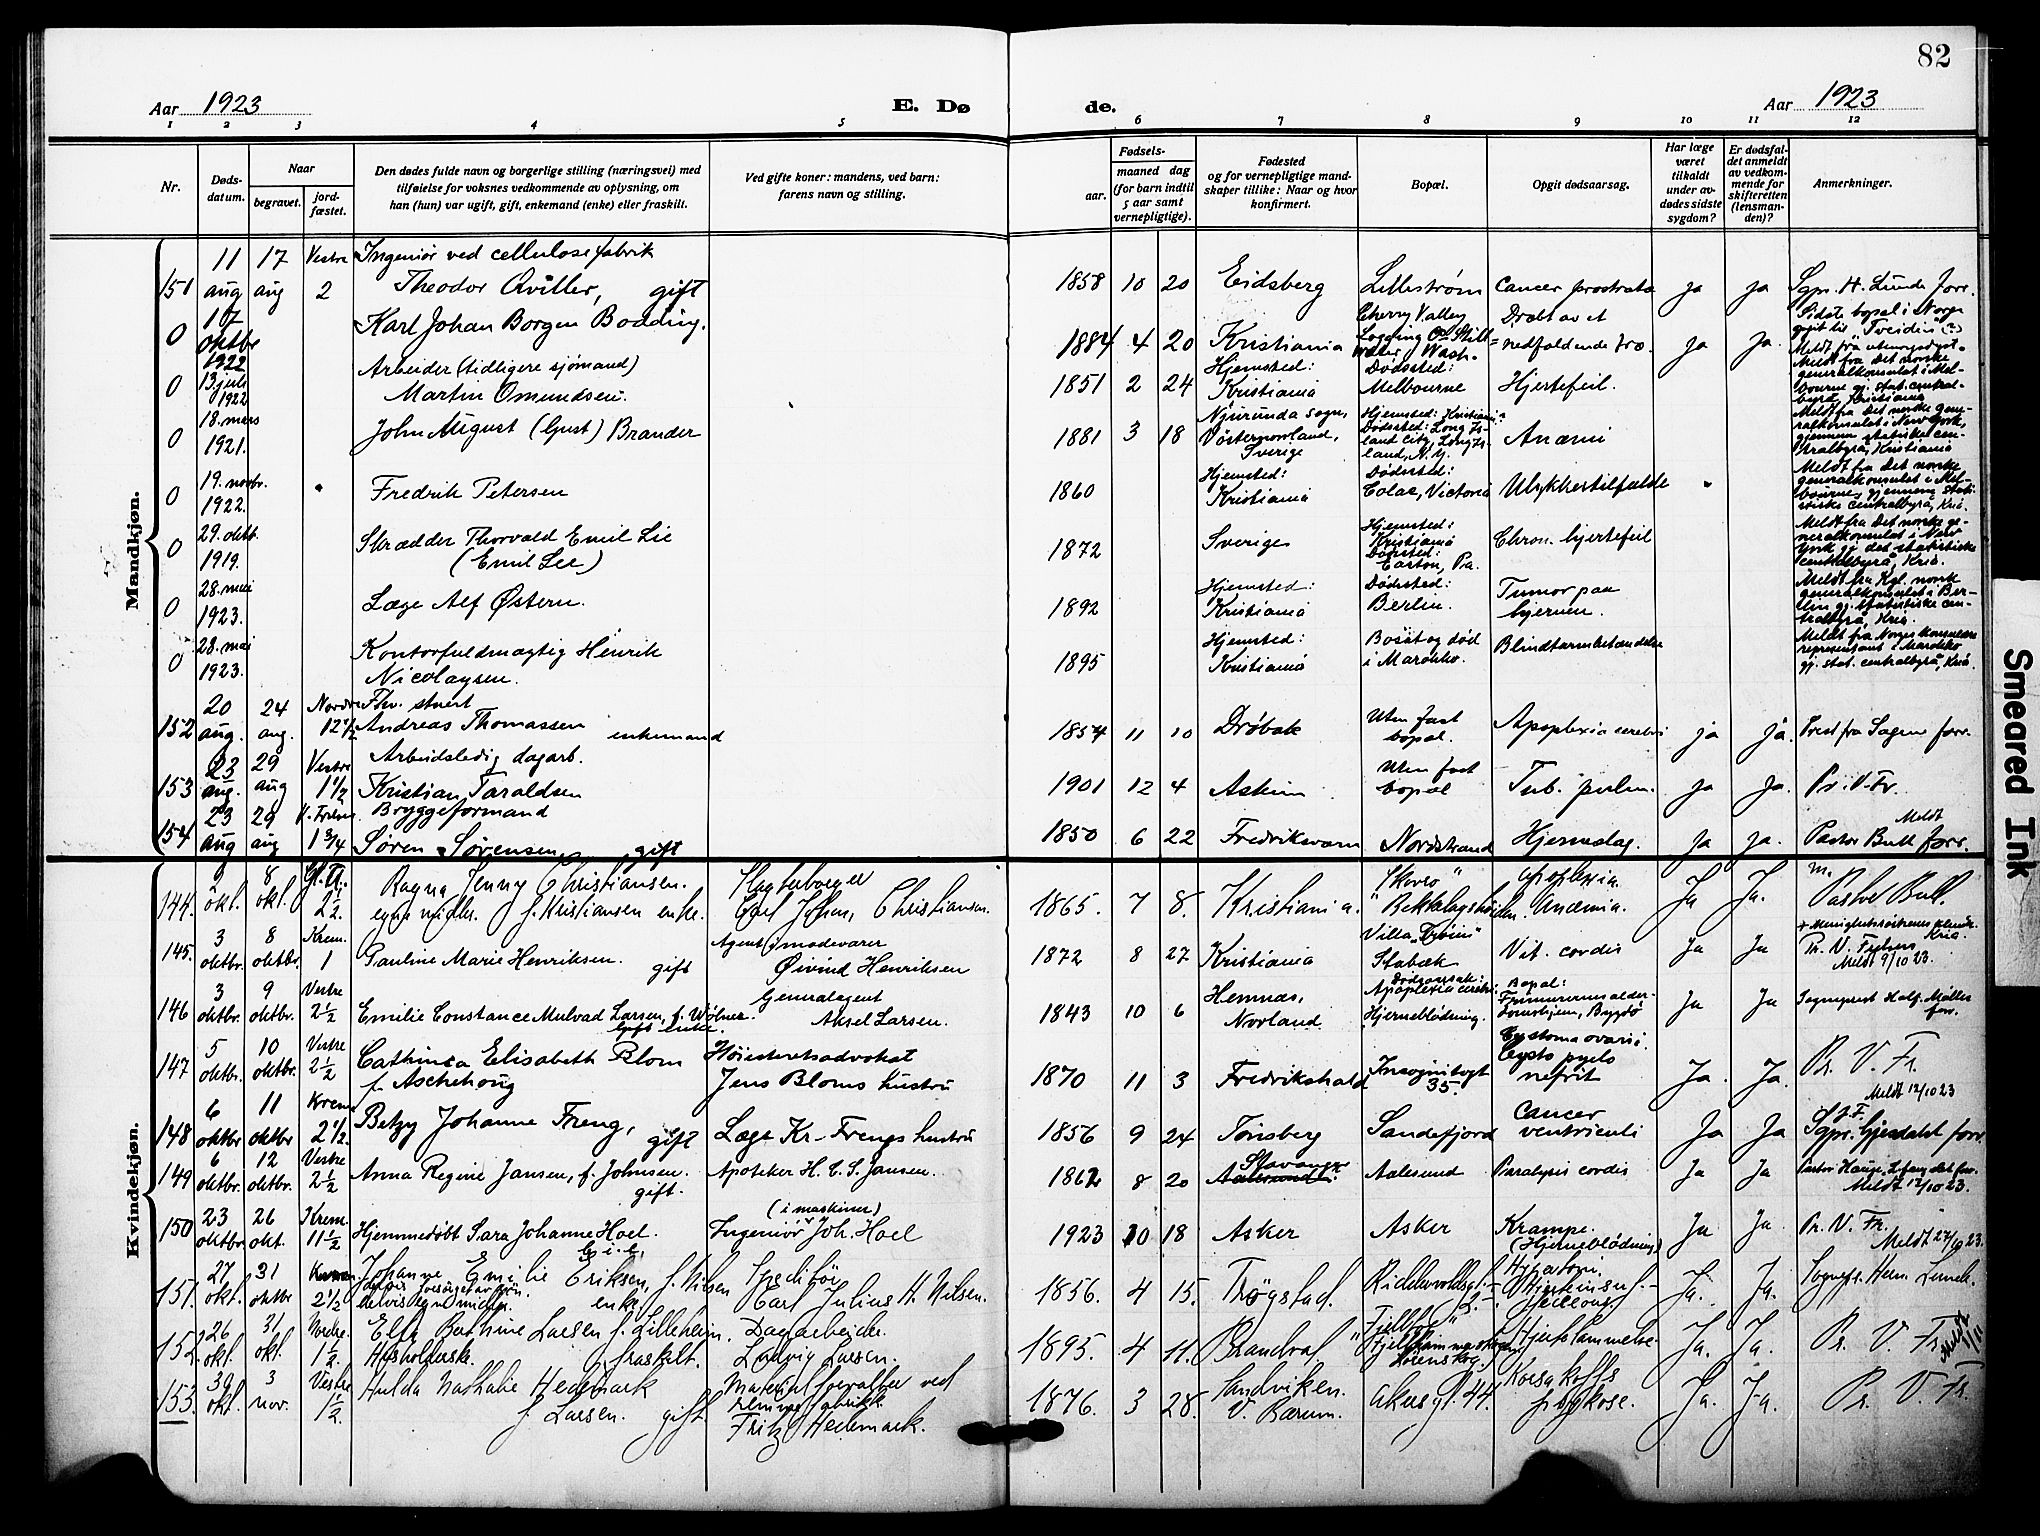 82
Aar 1923
E. Dø
de.
Aar 1923
1 2 3 4 5 6 7 8 9 10 11 12
Nr.
Døds-
datum.
Naar
begravet.
jord-
fæstet.
Den dødes fulde navn og borgerlige stilling (næringsvei) med
tilføielse for voksnes vedkommende av oplysning, om
han (hun) var ugift, gift, enkemand (enke) eller fraskilt.
Ved gifte koner: mandens, ved barn:
farens navn og stilling.
Fødsels-
aar.
maaned dag
(for barn indtil
5 aar samt
vernepligtige).
Fødested
og for vernepligtige mand-
skaper tillike: Naar og hvor
konfirmert.
Bopæl.
Opgit dødsaarsag.
Har læge
været
tilkaldt
under av-
dødes sidste
sygdom?
Er dødsfal-
det anmeldt
av vedkom-
mende for
skifteretten
(lensman-
den)?
Anmerkninger.
Mandkjøn.
151 11 aug 17 aug Vestre 2 Ingeniør ved cellulosefabrik
Theodor Qviller, gift 1858 10 20 Eidsberg Lillestrøm Cancer prostrata ja ja Sgpr. H. Lunde forr.
0 17 oktbr 1922 Karl Johan Borgen Bødding. 1884 4 20 Kristiania Cherry Valley Logging Co Still water, Wash. Dræbt av et nedfaldende træ. ja ja. Sidste bopæl i Norge
0 13 juli 1922 Arbeider (tidligere sjømand)
Martin Omundsen. 1851 2 24 Hjemsted: Kristiania Dødssted: Melbourne Hjertefeil. Meldt fra Det norske generalkonsulat i Melbourne gj. stat. centralbyrå, Kristiania
0 18. mars 1921. John August (Gust) Brander 1881 3 18 Njurunda sogn, Vösternorrland, Sverige Hjemsted: Kristiania Dødssted: Long Island City, Long Island, N.Y. Anæmi Meldt fra det norske generalkonsulat i New York, gjennem statistiske centralbyrå, Kristiania
0 19. novbr. 1922. Fredrik Petersen 1860 Hjemsted: Kristiania Dødssted: Colac, Victoria Ulykkestilfælde Meldt fra Det norske generalkonsulat i Melbourne, gjennem statistiske centralbyrå, Kria.
0 29. oktb. 1919. Skrædder Thorvald Emil Lie
(Emil Lee) 1872 Sverige Hjemsted: Kristiania Dødssted: Easton, Pa. Chron. hjertefeil Meldt fra Det norske generalkonsulat i New York gj. det statistiske centralbyrå, Kria.
0 28. mai 1923. Læge Alf Østern. 1892 Hjemsted: Kristiania Dødssted: Berlin. Tumor paa hjernen. Meldt fra Kgl. norsk generalkonsulat i Berlin gj. statistiske centralbyrå, Kria.
0 28. mai 1923. Kontorfuldmægtig Henrik
Nicolaysen. 1895 Hjemsted: Kristiania Bosat og død i Marokko. Blindtarmbetændelse Meldt fra Norges konsulære representant i Marokko gj. stat. centralbyrå, Kria.
152 20 aug. 24 aug. Nordre 12 1/2 Fhv. stuert
Andreas Thomassen enkemand 1854 11 10 Drøbak Uten fast bopæl. Apoplexia cerebri ja ja. Prest fra Sagene forr.
153 23 aug. 29 aug Vestre 1 1/2 Arbeidsledig dagarb.
Kristian Taraldsen 1901 12 4 Askim Uten fast bopæl Tub. pulm. ja ja. Pr. V. Fr.
154 23 aug 29 aug V. Frelser 1 3/4 Bryggeformand
Søren Sørensen gift 1850 6 22 Fredriksværn Nordstrand Hjerneslag. ja ja. Meldt Pastor Bull forr.
Kvindekjøn.
144. okt. 8 okt. 2 1/2. Ragna Jenny Christiansen.
egne midler. f. Kristiansen enke. Slagterborger Carl Johan Christiansen. 1865. 7 8. Kristiania. "Skovro" Bekkelagshöiden. apoplexia. Anæmia. Ja Ja. Pastor Bull.
145. 3 oktbr. 8 oktbr. Krem. 1 Pauline Marie Henriksen. gift Agent i modevarer Øivind Henriksen 1872 8 27 Kristiania Villa Stabæk Vit. cordis Ja Ja Pr. V. Frelsers Meldt 9/10 23.
146 3 oktbr. 9 oktbr. Vestre 2 1/2 Emilie Constance Mulvad Larsen, f. Wölner.
enke. Generalagent Aksel Larsen. 1843 10 6 Hemnæs, Norland Dødsaarsak: Apoplexia cerebri. Hjerneblödning. Bopæl: Frimurernes alders- Bygdö Ja Ja Sogneprest Half. Möller forr.
147 5 oktbr. 10 oktbr. Vestre 2 1/2 Cathinca Elisabeth Blom
f. Aschehoug Höiesteretsadvokat Jens Bloms hustru 1870 11 3 Fredrikshald Incognitogt 35. Cystoma ovarii. Cysto pyelo nefrit Ja. Ja. Pr. V. Fr. Meldt 12/10 23
148 6 oktbr 11 oktbr Krem 2 1/2. Betzy Johanne Freng, gift Læge Kr. Frengs hustru 1856 9 24 Tönsberg Sandefjord Cancer ventriculi Ja Ja Sgpr. Gjesdahl forr.
149 6 oktbr. 12 oktbr. Vestre 2 1/2 Anna Regine Jansen, f. Johnsen.
gift. Apoteker H. C. S. Jansen 1862 8 20 Stavanger Aalesund Paralysis cordis Ja Ja Pastor Hauge, forr. Meldt 12/10 23.
150 23 oktbr. 26 okt. Krem. 11 1/2 Hjemmedøbt Sara Johanne Hoel. (i maskiner) Ingeniör Joh. Hoel 1923 10 18 Asker Asker Krampe. (Hjerneblödning) Ja Ja. Pr. V. Fr. Meldt 27/10 23.
151. 27 okt. 31 oktbr 2 1/2 Johanne Emilie Eriksen, f. Nilsen
enke Speditör Carl Julius H. Nilsen. 1856. 4 15. Trøgstad. Ja. Ja.
152. 26 okt. 31 okt. Nordre. 1 1/2. Elfr. Bertine Larsen f. Lillehejm.
Husholderske. fraskilt. Dagarbeider. Ludvig Larsen. 1895. 4 11. Brandval Lörenskog. Hjertelammelse. Ja. Ja. Pr. V. Fr.
153. 30 okt. 3 nov. Vestre 1 1/2. Hulda Nathalie Hedemark
f. Larsen. gift Materialforvalter ved Fritz Hedemark. 1876. 3 28. Sandviken. V. Bærum. Akersgt. 44. Korsakoffs psykose. Ja. Ja. Pr. V. Fr.
Smeared Ink